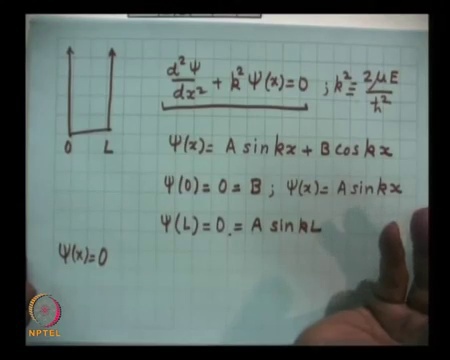 d²Ψ/dx² + k² Ψ(x) = 0 ; k² ≡ 2μE/ħ²
0 L
Ψ(x) = A sin kx + B cos kx
Ψ(0) = 0 = B ; Ψ(x) = A sin kx
Ψ(L) = 0 . = A sin kL
Ψ(x) = 0
NPTEL